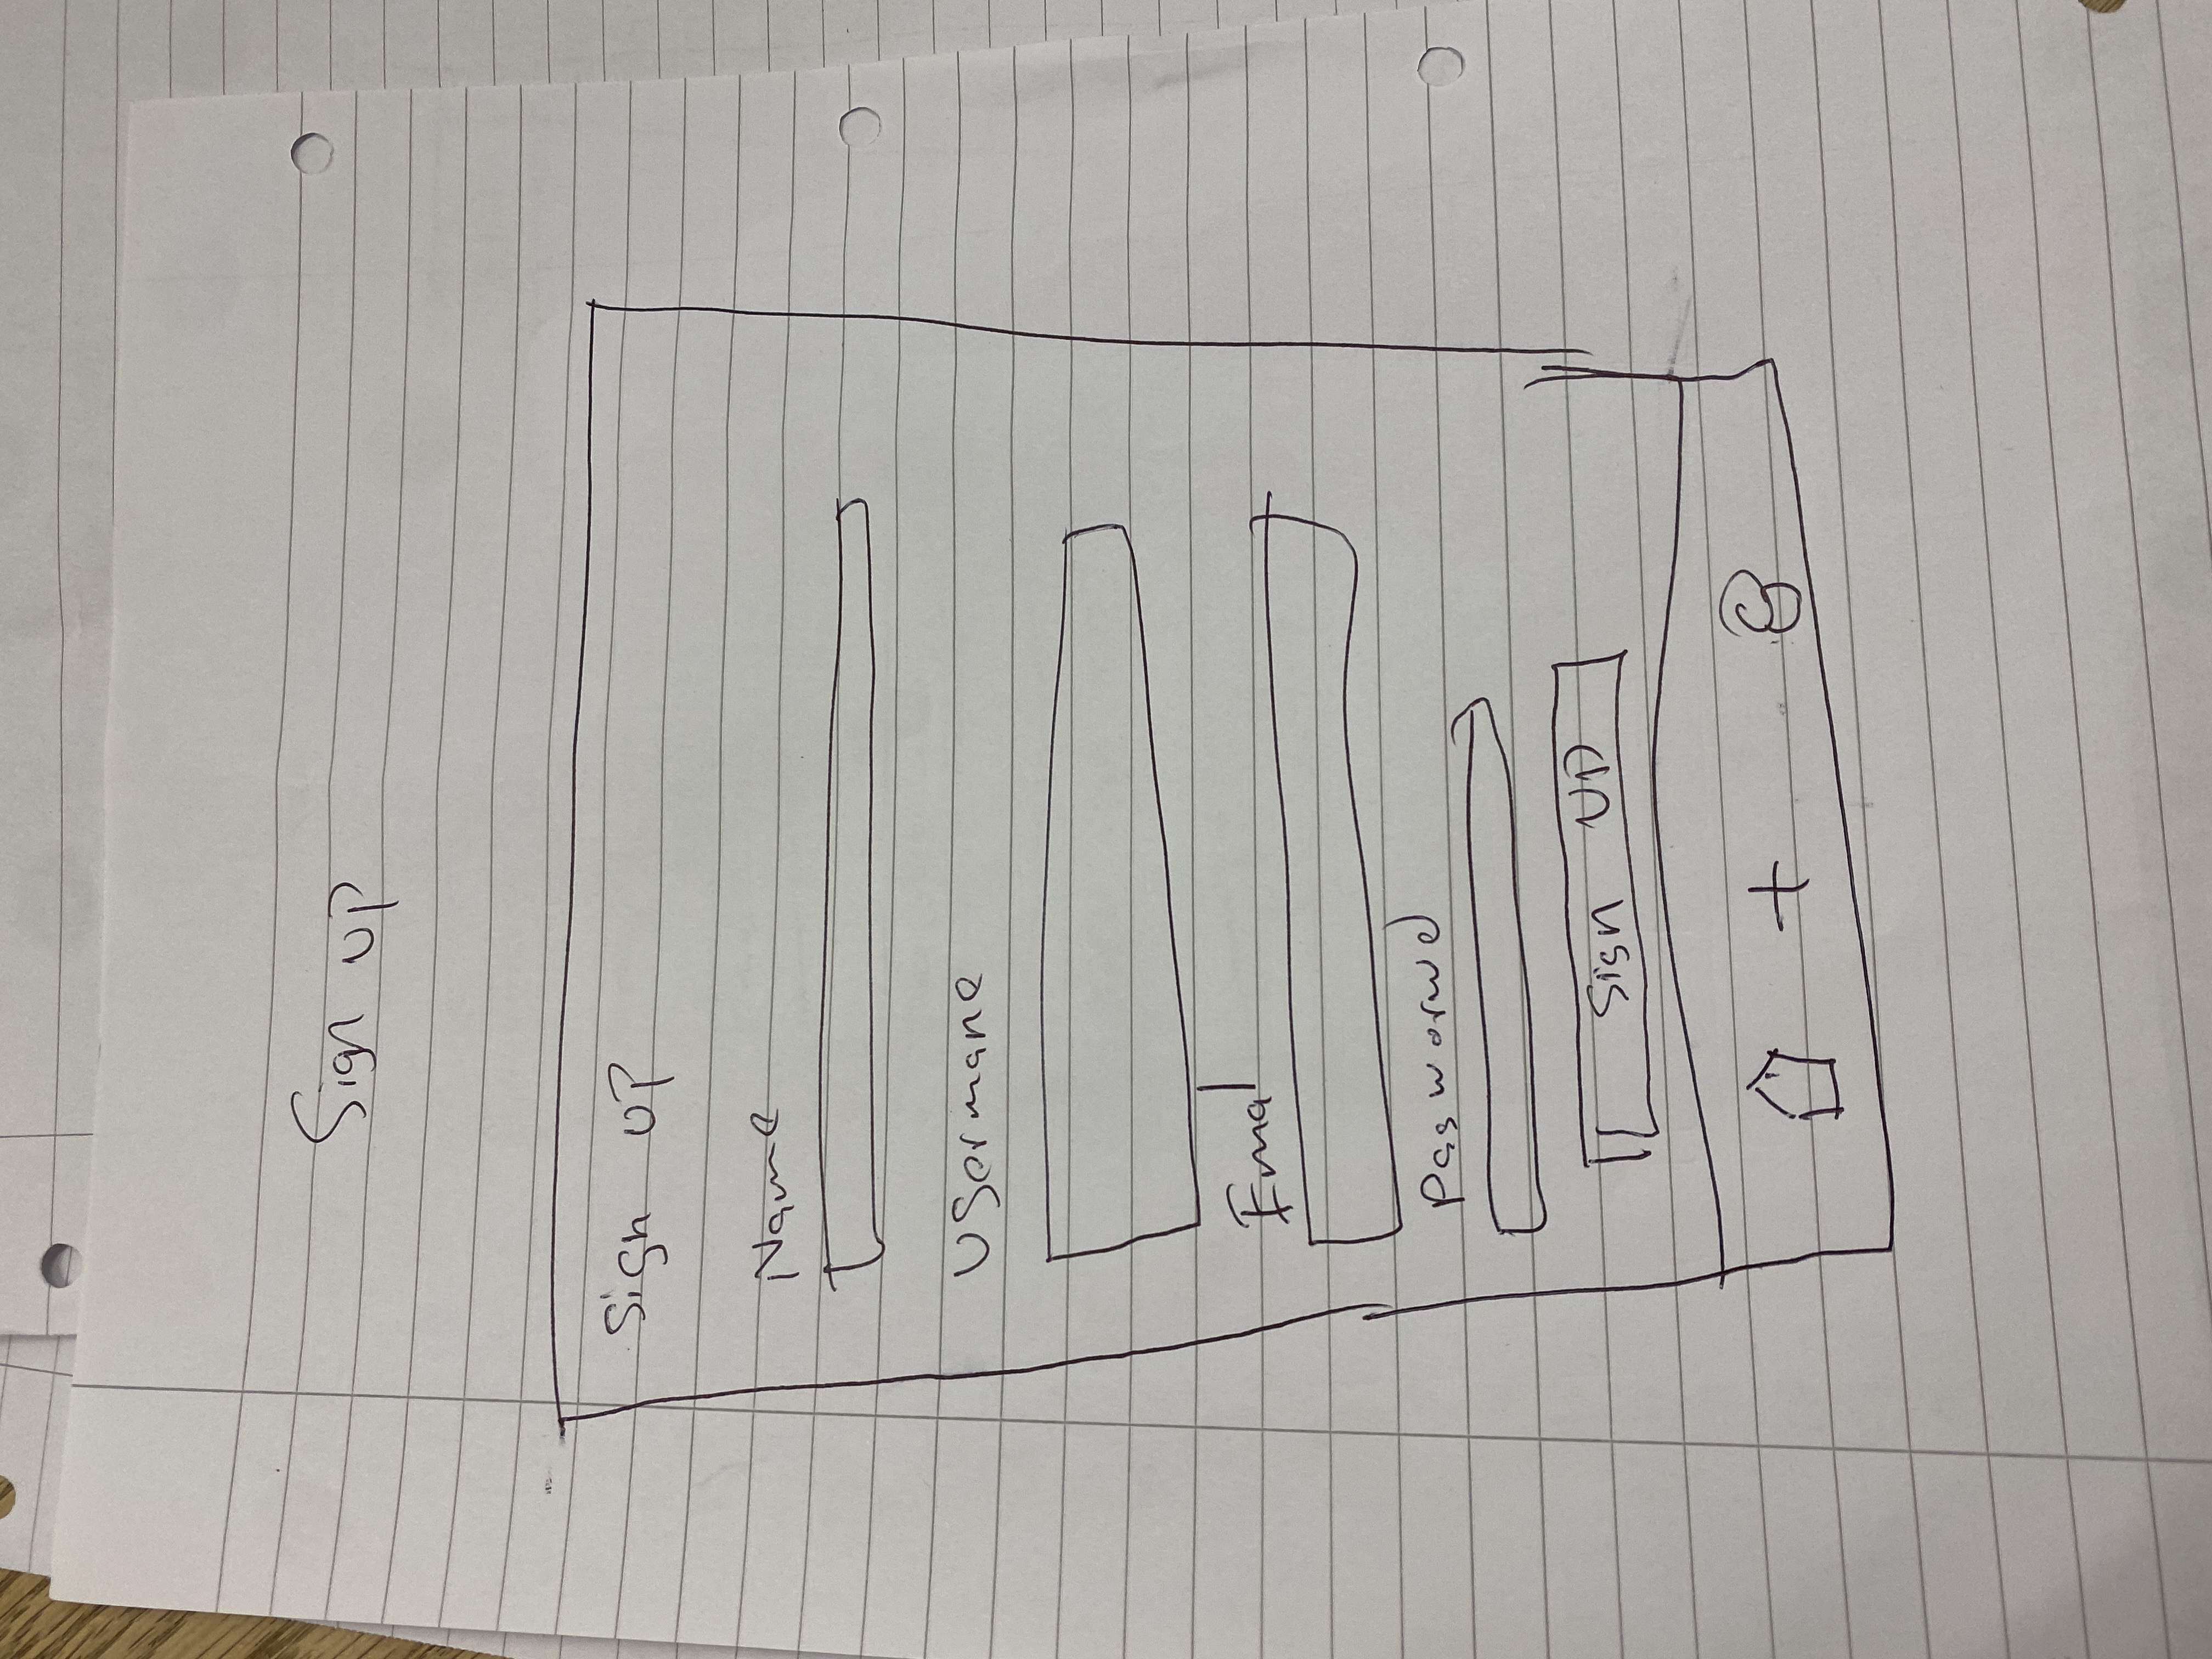 Sign up
Sign UP
Name
Usermane
Emal
Passworwd
Sign UP